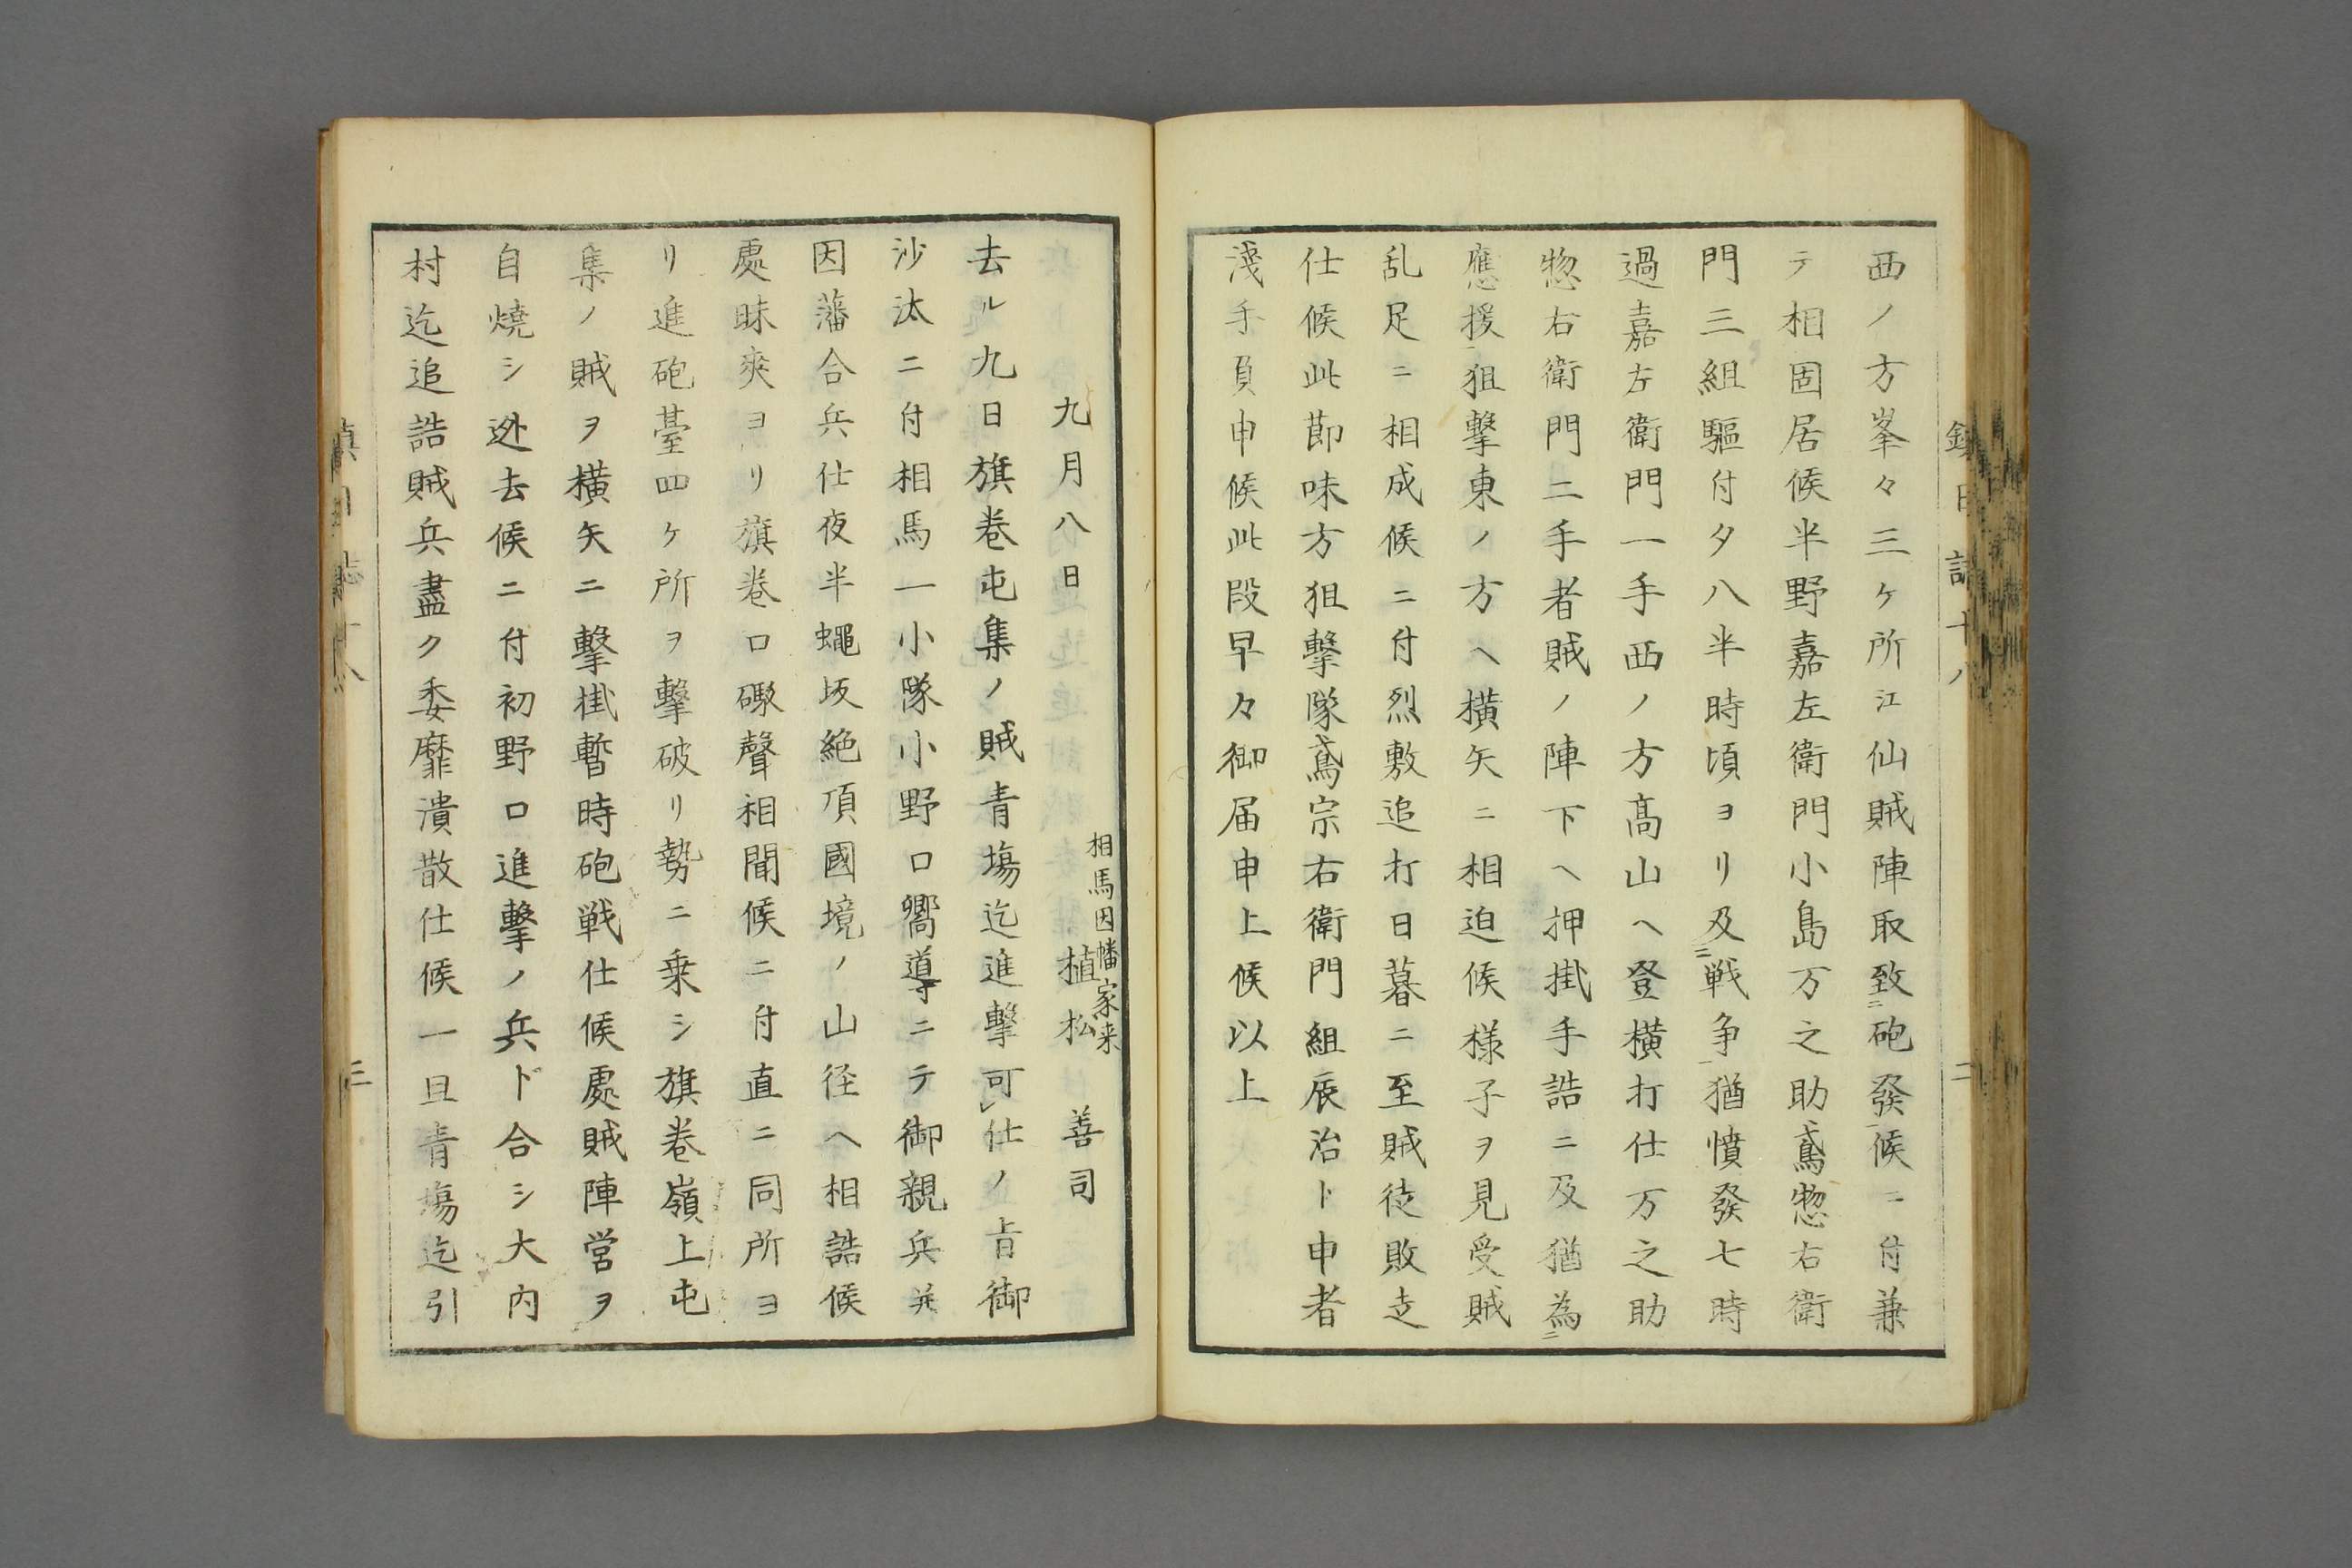 西ノ方峯々三ヶ所江仙賊陣取致ニ砲發一候ニ付兼
テ相固居候半野嘉左衛門小島万之助鳶惣右衛
門三組驅付夕八半時頃ヨリ及ニ戦争一猶憤發七時
過嘉左衛門一手西ノ方髙山ヘ登横打仕万之助
惣右衛門二手者賊ノ陣下ヘ押掛手詰ニ及猶為ニ
應援一狙撃東ノ方ヘ横矢ニ相迫候様子ヲ見受賊
乱足ニ相成候ニ付烈敷追打日暮ニ至賊徒敗走
仕候此節味方狙撃隊鳶宗右衛門組辰治ト申者
淺手負申候此段早々御届申上候以上
相馬因幡家来
九月八日 植松 善司
去ル九日旗巻屯集ノ賊青塲迄進擊可レ仕ノ旨御
沙汰ニ付相馬一小隊小野口嚮導ニテ御親兵并
因藩合兵仕夜半蠅坂絶頂國境ノ山径ヘ相詰候
處昧爽ヨリ旗巻口礟聲相聞候ニ付直ニ同所ヨ
リ進砲臺四ヶ所ヲ擊破リ勢ニ乗シ旗巻嶺上屯
集ノ賊ヲ横矢ニ擊掛暫時砲戦仕候處賊陣営ヲ
自燒シ迯去候ニ付初野口進擊ノ兵ド合シ大内
村迄追詰賊兵盡ク委靡潰散仕候一旦青塲迄引
二
三